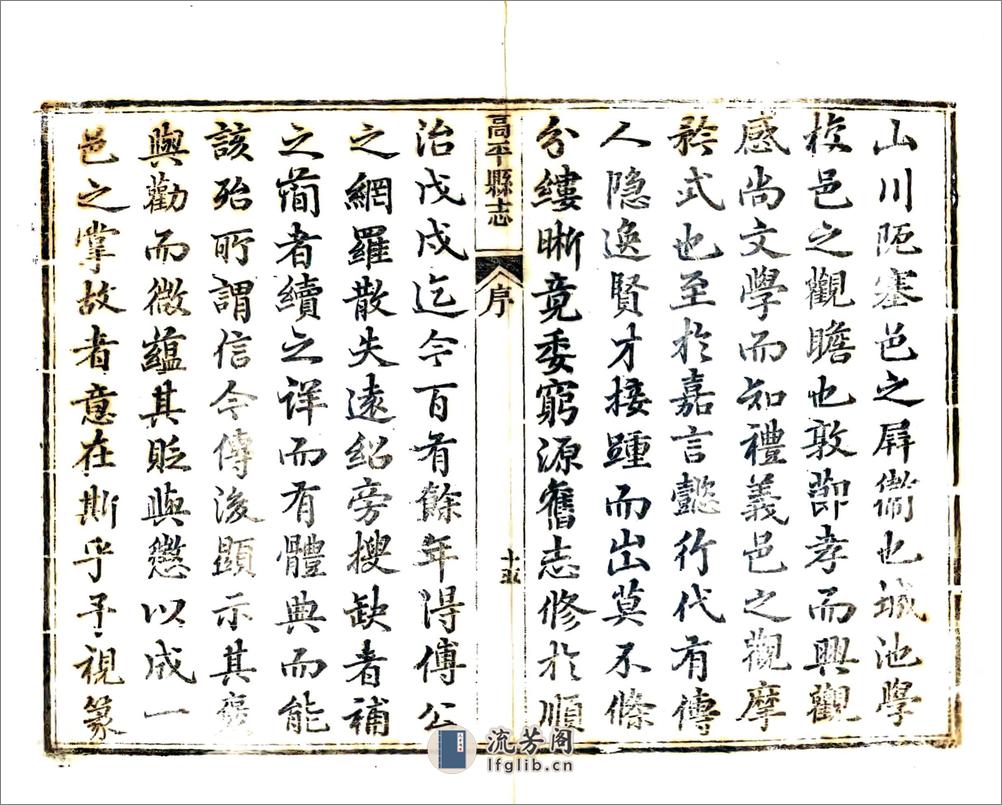 山川阨塞邑之屏衞也城池學
校邑之觀瞻也敦節孝而興觀
感尚文學而知禮義邑之觀摩
矜式也至於嘉言懿行代有傳
人隐逸賢才接踵而出莫不條
分縷晰竟委窮源舊志修於順
高平縣志
序
十五
治戊戌迄今百有餘年得傅公
之網羅散失遠紹旁搜缺者補
之簡者續之详而有體典而能
該殆所謂信今傳後顯示其褒
與勸而微蘊其貶與懲以成一
邑之掌故者意在斯乎予視篆
流芳阁
lfglib.cn